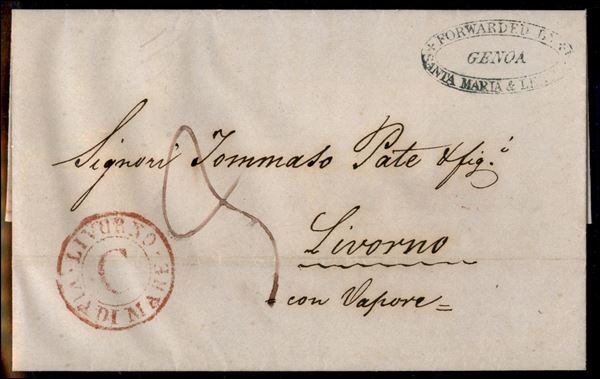 FORWARDED BY
GENOA
SANTA MARIA &
Signori Tommaso Pate & fig.i
Livorno
= con Vapore =
VIA DI MARE
C